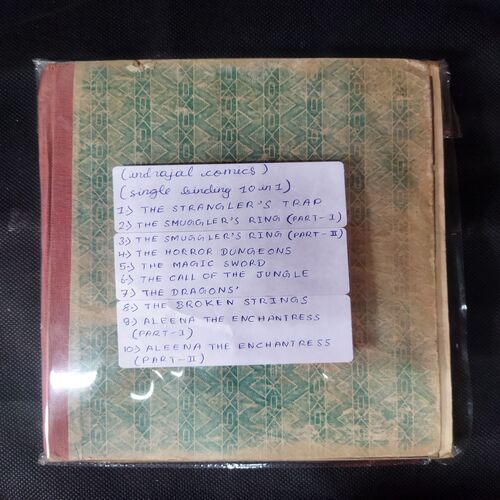 (indrajal comics)
(single binding 10 in 1)
1) THE STRANGLER'S TRAP
2) THE SMUGGLER'S RING (PART-I)
3) THE SMUGGLER'S RING (PART-II)
4) THE HORROR DUNGEONS
5) THE MAGIC SWORD
6) THE CALL OF THE JUNGLE
7) THE DRAGONS'
8) THE BROKEN STRINGS
9) ALEENA THE ENCHANTRESS
(PART-I)
10) ALEENA THE ENCHANTRESS
(PART-II)